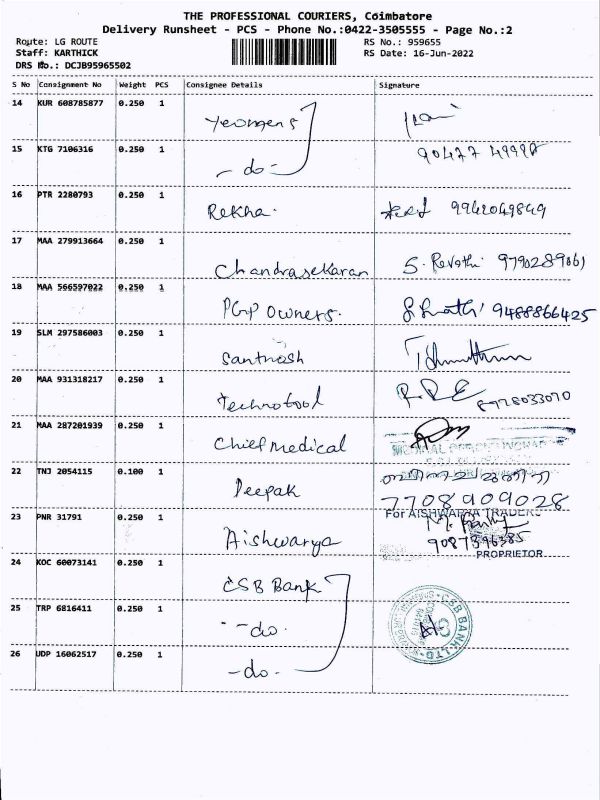 THE PROFESSIONAL COURIERS, Coimbatore
Delivery Runsheet - PCS - Phone No.:0422-3505555 - Page No.:2
Route: LG ROUTE RS No.: 959655
Staff: KARTHICK RS Date: 16-Jun-2022
DRS No.: DCJB95965502
S No Consignment No Weight PCS Consignee Details Signature
14 KUR 608785877 0.250 1
15 KTG 7106316 0.250 1
- do -
16 PTR 2280793 0.250 1
Rekha. 9942049849
17 MAA 279913664 0.250 1
Chandrasekaran S. Revathi
18 MAA 566597022 0.250 1
PGP Owners. 9488866425
19 SLM 297586003 0.250 1
Santhosh
20 MAA 931318217 0.250 1
Technotool
21 MAA 287201939 0.250 1
Chief Medical
22 TNJ 2054115 0.100 1
Deepak 7708909028
23 PNR 31791 0.250 1
For AISHWARYA TRADERS
Aishwarya 9087396385
PROPRIETOR
24 KOC 60073141 0.250 1
CSB Bank
25 TRP 6816411 0.250 1
- do - CSB BANK LTD
26 UDP 16062517 0.250 1
- do -